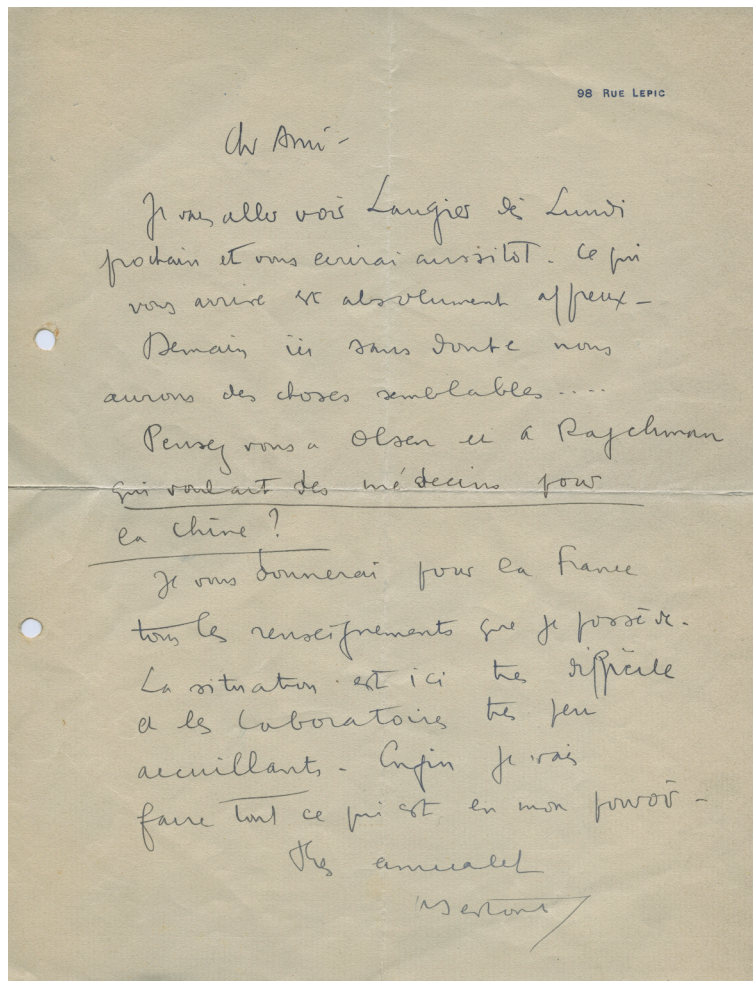 98 RUE LEPIC
Cher Ami -
Je vais aller voir Laugier dès Lundi
prochain et vous écrirai aussitôt. Ce qui
vous arrive est absolument affreux -
Demain ici sans doute nous
aurons des choses semblables ....
Pensez vous a Olsen et à Rajchman
qui voulait des médecins pour
la Chine ?
Je vous donnerai pour la France
tous les renseignements que je possède.
La situation est ici très difficile
et les Laboratoires très peu
accueillants - Enfin je vais
faire tout ce qui est en mon pouvoir -
Très amicalet